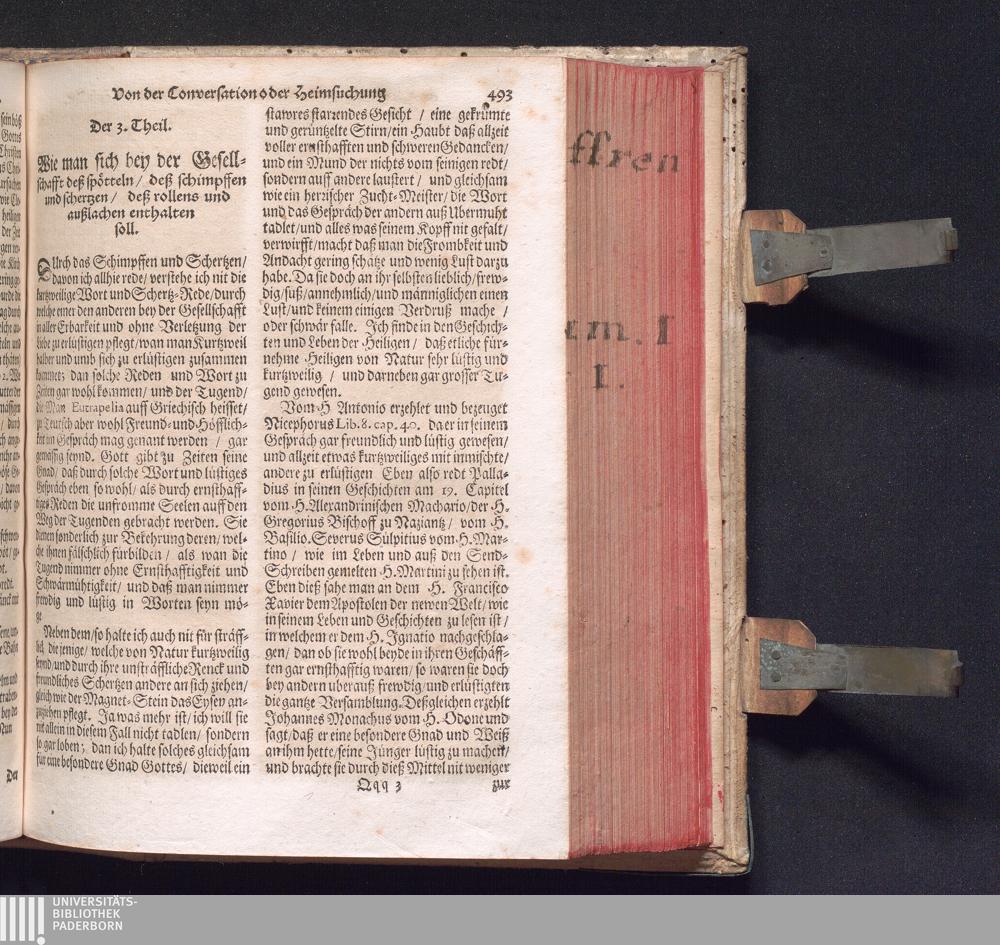 Von der Conversation oder Heimsuchung 493
Der 3. Theil.
Wie man sich bey der Gesell-
schafft deß spötteln / deß schimpffen
und schertzen / deß rollens und
außlachen enthalten
soll.
DUrch das Schimpffen und Schertzen /
davon ich allhie rede / verstehe ich nit die
kurtzweilige Wort und Schertz-Rede / durch
welche einer den anderen bey der Gesellschafft
in aller Erbarkeit und ohne Verletzung der
Liebe zu erlustigen pflegt / wan man Kurtzweil
halber und umb sich zu erlüstigen zusammen
kommet; dan solche Reden und Wort zu
Zeiten gar wohl kommen / und der Tugend /
die Man Eutrapelia auff Griechisch heisset /
zu Teutsch aber wohl Freund- und Höfflich-
keit im Gespräch mag genant werden / gar
gemäßig seynd. Gott gibt zu Zeiten seine
Gnad / daß durch solche Wort und lüstiges
Gespräch eben so wohl / als durch ernsthaff-
tiges Reden die unfromme Seelen auff den
Weg der Tugenden gebracht werden. Sie
dienen sonderlich zur Bekehrung deren / wel-
che ihnen fälschlich fürbilden / als wan die
Tugend nimmer ohne Ernsthafftigkeit und
Schwärmühtigkeit / und daß man nimmer
frewdig und lüstig in Worten seyn mö-
ge
Neben dem / so halte ich auch nit für sträff-
lich diejenige / welche von Natur kurtzweilig
seynd / und durch ihre unsträffliche Renck und
freundliches Schertzen andere an sich ziehen /
gleich wie der Magnet-Stein das Eysen an-
zuziehen pflegt. Ja was mehr ist / ich will sie
nit allein in diesem Fall nicht tadlen / sondern
so gar loben; dan ich halte solches gleichsam
für eine besondere Gnad Gottes / dieweil ein
stawres starzendes Gesicht / eine gekrümte
und gerüntzelte Stirn / ein Haubt daß allzeit
voller ernsthafften und schweren Gedancken /
und ein Mund der nichts vom seinigen redt /
sondern auff andere laustert / und gleichsam
wie ein herzischer Zucht-Meister / die Wort
und das Gespräch der andern auß Ubermuht
tadlet / und alles was seinem Kopff nit gefalt /
verwirfft / macht daß man die Frombkeit und
Andacht gering schätze und wenig Lust darzu
habe. Da sie doch an ihr selbsten lieblich / frew-
dig / süß / annehmlich / und männiglichen einen
Lust / und keinem einigen Verdruß mache /
oder schwär falle. Ich finde in den Geschich-
ten und Leben der Heiligen / daß etliche für-
nehme Heiligen von Natur sehr lüstig und
kurtzweilig / und darneben gar grosser Tu-
gend gewesen.
Vom H. Antonio erzehlet und bezeuget
Nicephorus Lib. 8. cap. 40. da er in seinem
Gespräch gar freundlich und lüstig gewesen /
und allzeit etwas kurtzweiliges mit inmischte /
andere zu erlüstigen Eben also redt Palla-
dius in seinen Geschichten am 19. Capitel
vom H. Alexandrinischen Machario / der H.
Gregorius Bischoff zu Naziantz / vom H.
Basilio. Severus Sulpitius vom H. Mar-
tino / wie im Leben und auß den Send-
Schreiben gemelten H. Martini zu sehen ist.
Eben dieß sahe man an dem H. Francisco
Xavier dem Apostolen der newen Welt / wie
in seinem Leben und Geschichten zu lesen ist /
in welchem er dem H. Ignatio nachgeschla-
gen / dan ob sie wohl beyde in ihren Geschäff-
ten gar ernsthafftig waren / so waren sie doch
bey andern uberauß frewdig / und erlüstigten
die gantze Versamblung. Deßgleichen erzehlt
Johannes Monachus vom H. Odone und
sagt / daß er eine besondere Gnad und Weiß
an ihm hette / seine Jünger lüstig zu machen /
und brachte sie durch dieß Mittel nit weniger
Qqq 3 zur
ffren
em. I
I.
UNIVERSITÄTS-
BIBLIOTHEK
PADERBORN